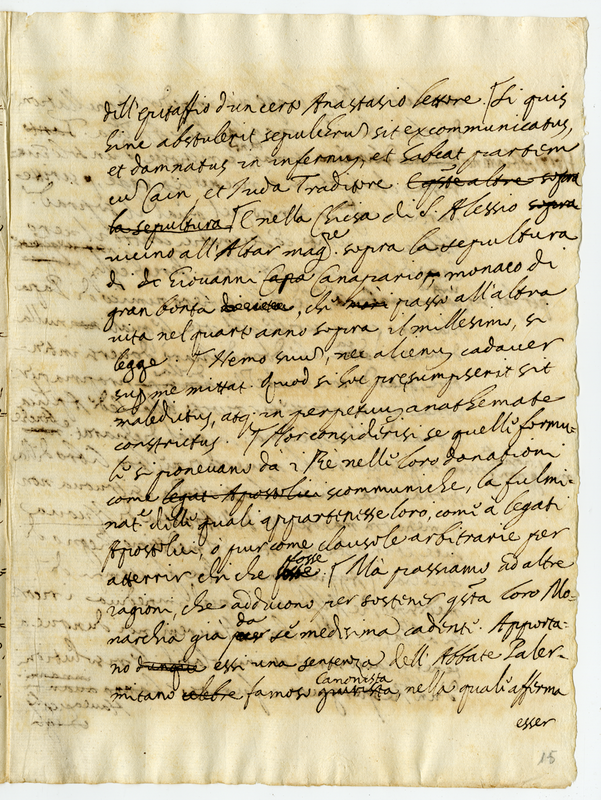 dell'epitaffio d'un certo Anastasio lettore. [Si quis
hinc abstulerit sepulchrũ sit excommunicatus,
et damnatus in infernum, et habeat partem
cũ Cain, et Iuda Traditore. e qste altre sopra
la sepultura [E nella Chiesa di S. Alessio sopra
vicino all'Altar magre. sopra la sepultura
di de Giovanni Capa Canapario, monaco di
gran bontà che passò all'altra
vita nel quarto anno sopra il millesimo, si
legge. [Nemo suũ, nec alienum cadaver
sup me mittat. Quod si hoc presumpserit sit
maledictus, atq. in perpetuum anathemate
constrictus. [Hor considerisi se quelle formu-
le si ponevano da i Re nelle loro donationi
come legati Apostolici scommuniche, la fulmi-
natne delle quali appartenesse loro, come a legati
Apostolici, o pur come clausole arbitrarie per
atterrir chi che fosse. [Ma passiamo ad altre
ragioni, che adducono per sostener qsta loro Mo-
narchia già per da se medesima cadente. Apporta-
no dunque essi una sentenza dell'Abbate Paler-
mitano celebre famoso giurista Canonista, nella quale afferma
esser
15